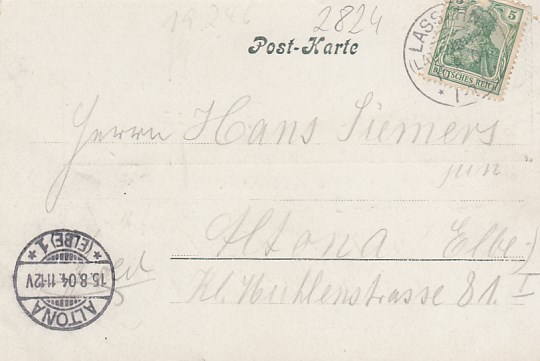 19.246
2824
Post-Karte
LASS
5
DEUTSCHES REICH
Herrn Hans Siemers
jun
Altona Elbe
Kl. Mühlenstrasse 81. I
ALTONA
15.8.04. 11-12V
* (ELBE) 1 *